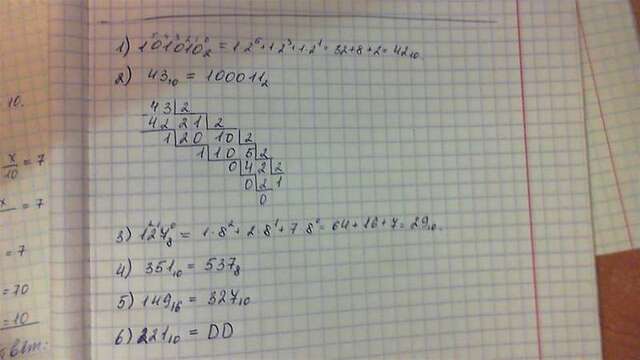 1) 101010₂ = 1·2⁵+1·2³+1·2¹= 32+8+2= 42₁₀
2) 43₁₀ = 100011₂
43 2
42 21 2
1 20 10 2
1 10 5 2
0 4 2 2
0 2 1
0
3) 127₈ = 1·8²+2·8¹+7·8⁰= 64+16+7= 29₁₀.
4) 351₁₀ = 537₈
5) 149₁₆ = 327₁₀
6) 221₁₀ = DD
10.
x/10 = 7
x = 7
= 7
= 70
= 10